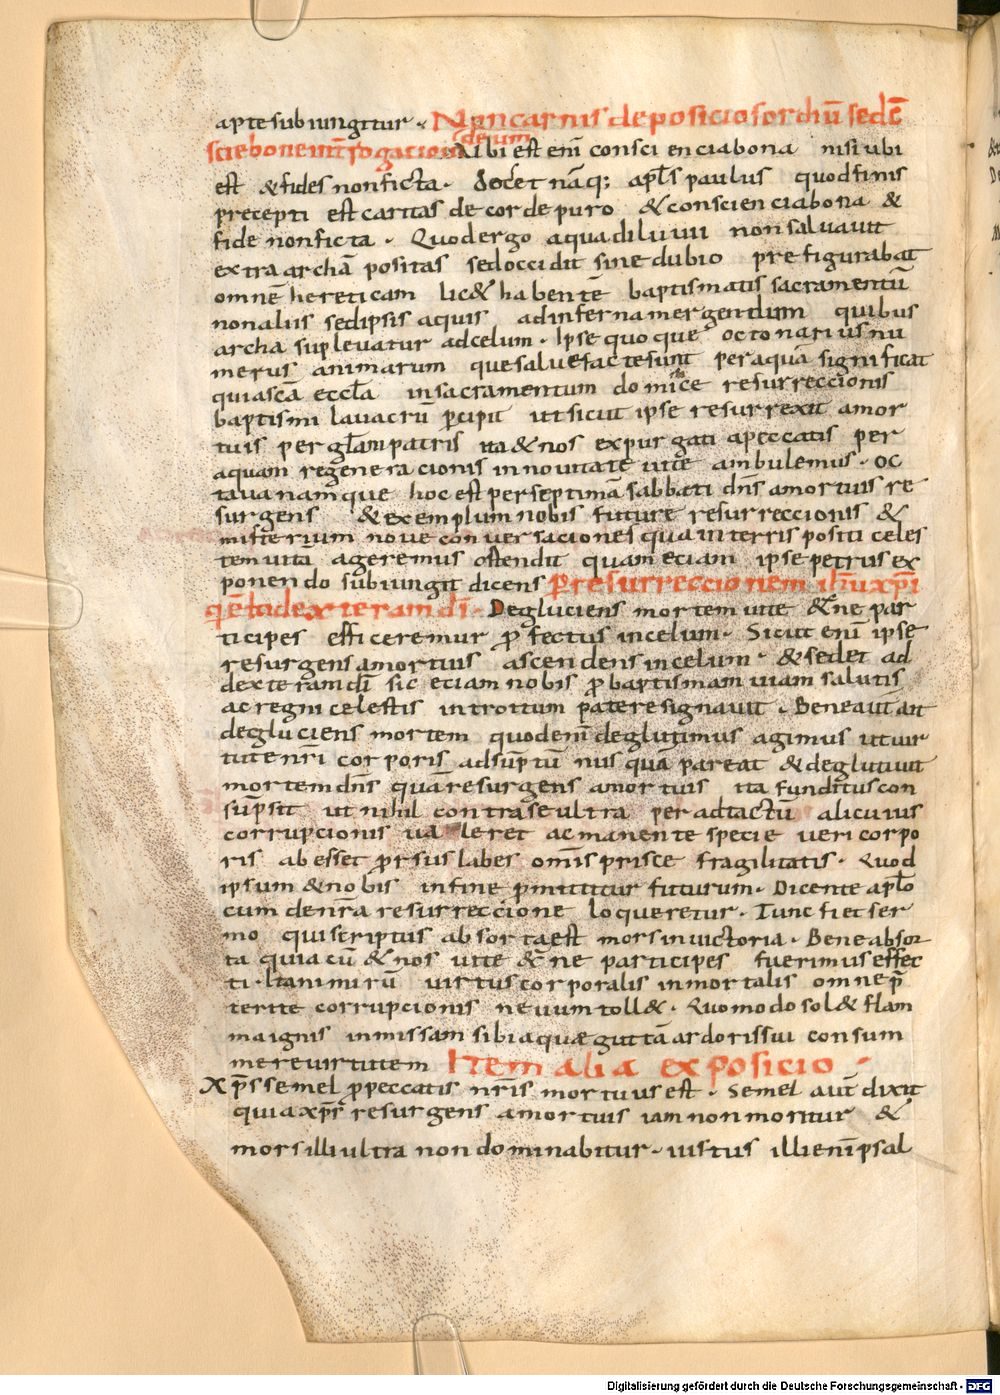 apte subiungitur . Non carnis deposicio sordiū sed c̄
scie bone int̄rogacio in deum Vbi est enī consciencia bona nisi ubi
est & fides non ficta . docet nāq; apl̄s paulus quod finis
precepti est caritas de corde puro & consciencia bona &
fide non ficta . Quod ergo aqua diluuii non saluauit
extra archā positas sed occidit sine dubio prefigurabat
omnē hereticam lic& habentē baptismatis sacramentū
non aliis sed ipsis aquis ad inferna mergendum quibus
archa supleuatur ad celum . Ipse quoque octonarius nu
merus animarum que saluefacte sunt per aquā significat
qui ascā eccl̄a in sacramentum dominice resurreccionis
baptismi lauacrū p̄cipit ut sicut ipse resurrexit amor
tuis per gl̄am patris ita & nos expurgati apeccatis per
aquam regeneracionis in nouitate uite ambulemus . oc
taua namque hoc est per septimā sabbati dn̄s amortuis re
surgens & exemplum nobis future resurreccionis &
misterium noue conuersaciones qua in terris positi celes
tem uitā ageremus ostendit quam eciam ipse petrus ex
ponendo subiungit dicens Per resurreccionem ih̄u xp̄i
qē ad dexteram dī . Degluciens mortem uite &̄ne par
ticipes efficeremur p̄fectus in celum . Sicut enī ipse
resurgens amortuis ascendens in celum . & sedet ad
dexteram dī sic eciam nobis p̄ baptismam uiam salutis
ac regni celestis introitum patere signauit . Bene aūt ait
degluciens mortem quod enī deglutimus agimus ut uir
tute nr̄i corporis adsūptū nusquā pareat & deglutiuit
mortem dn̄s quā resurgens amortuis ita funditus con
sūpsit ut nihil contra se ultra per adtactū alicuius
corrupcionis ualeret ac manente specie ueri corpo
ris abesset p̄rsus labes om̄is prisce fragilitatis . Quod
ipsum & nobis in fine p̄mittitur futurum . Dicente apl̄o
cum de nr̄a resurreccione loqueretur . Tunc fiet ser
mo qui scriptus absorta est mors in uictoria . Bene absor
ta quia cū & nos uite &̄ne participes fuerimus effec
ti . Ita nimirū uirtus corporalis inmortalis omne p̄
terite corrupcionis neuum toll& . Quomodo sol& flam
ma ignis inmissam sibi aquæ guttā ardoris sui consum
mere uirtutem Item alia exposicio
Xp̄s semel p̄ peccatis nr̄is mortuus est . Semel aūt dixit
quia xp̄s resurgens amortuis iam non moritur &
mors illi ultra non dominabitur . iustus ille in psal
Digitalisierung gefördert durch die Deutsche Forschungsgemeinschaft - DFG